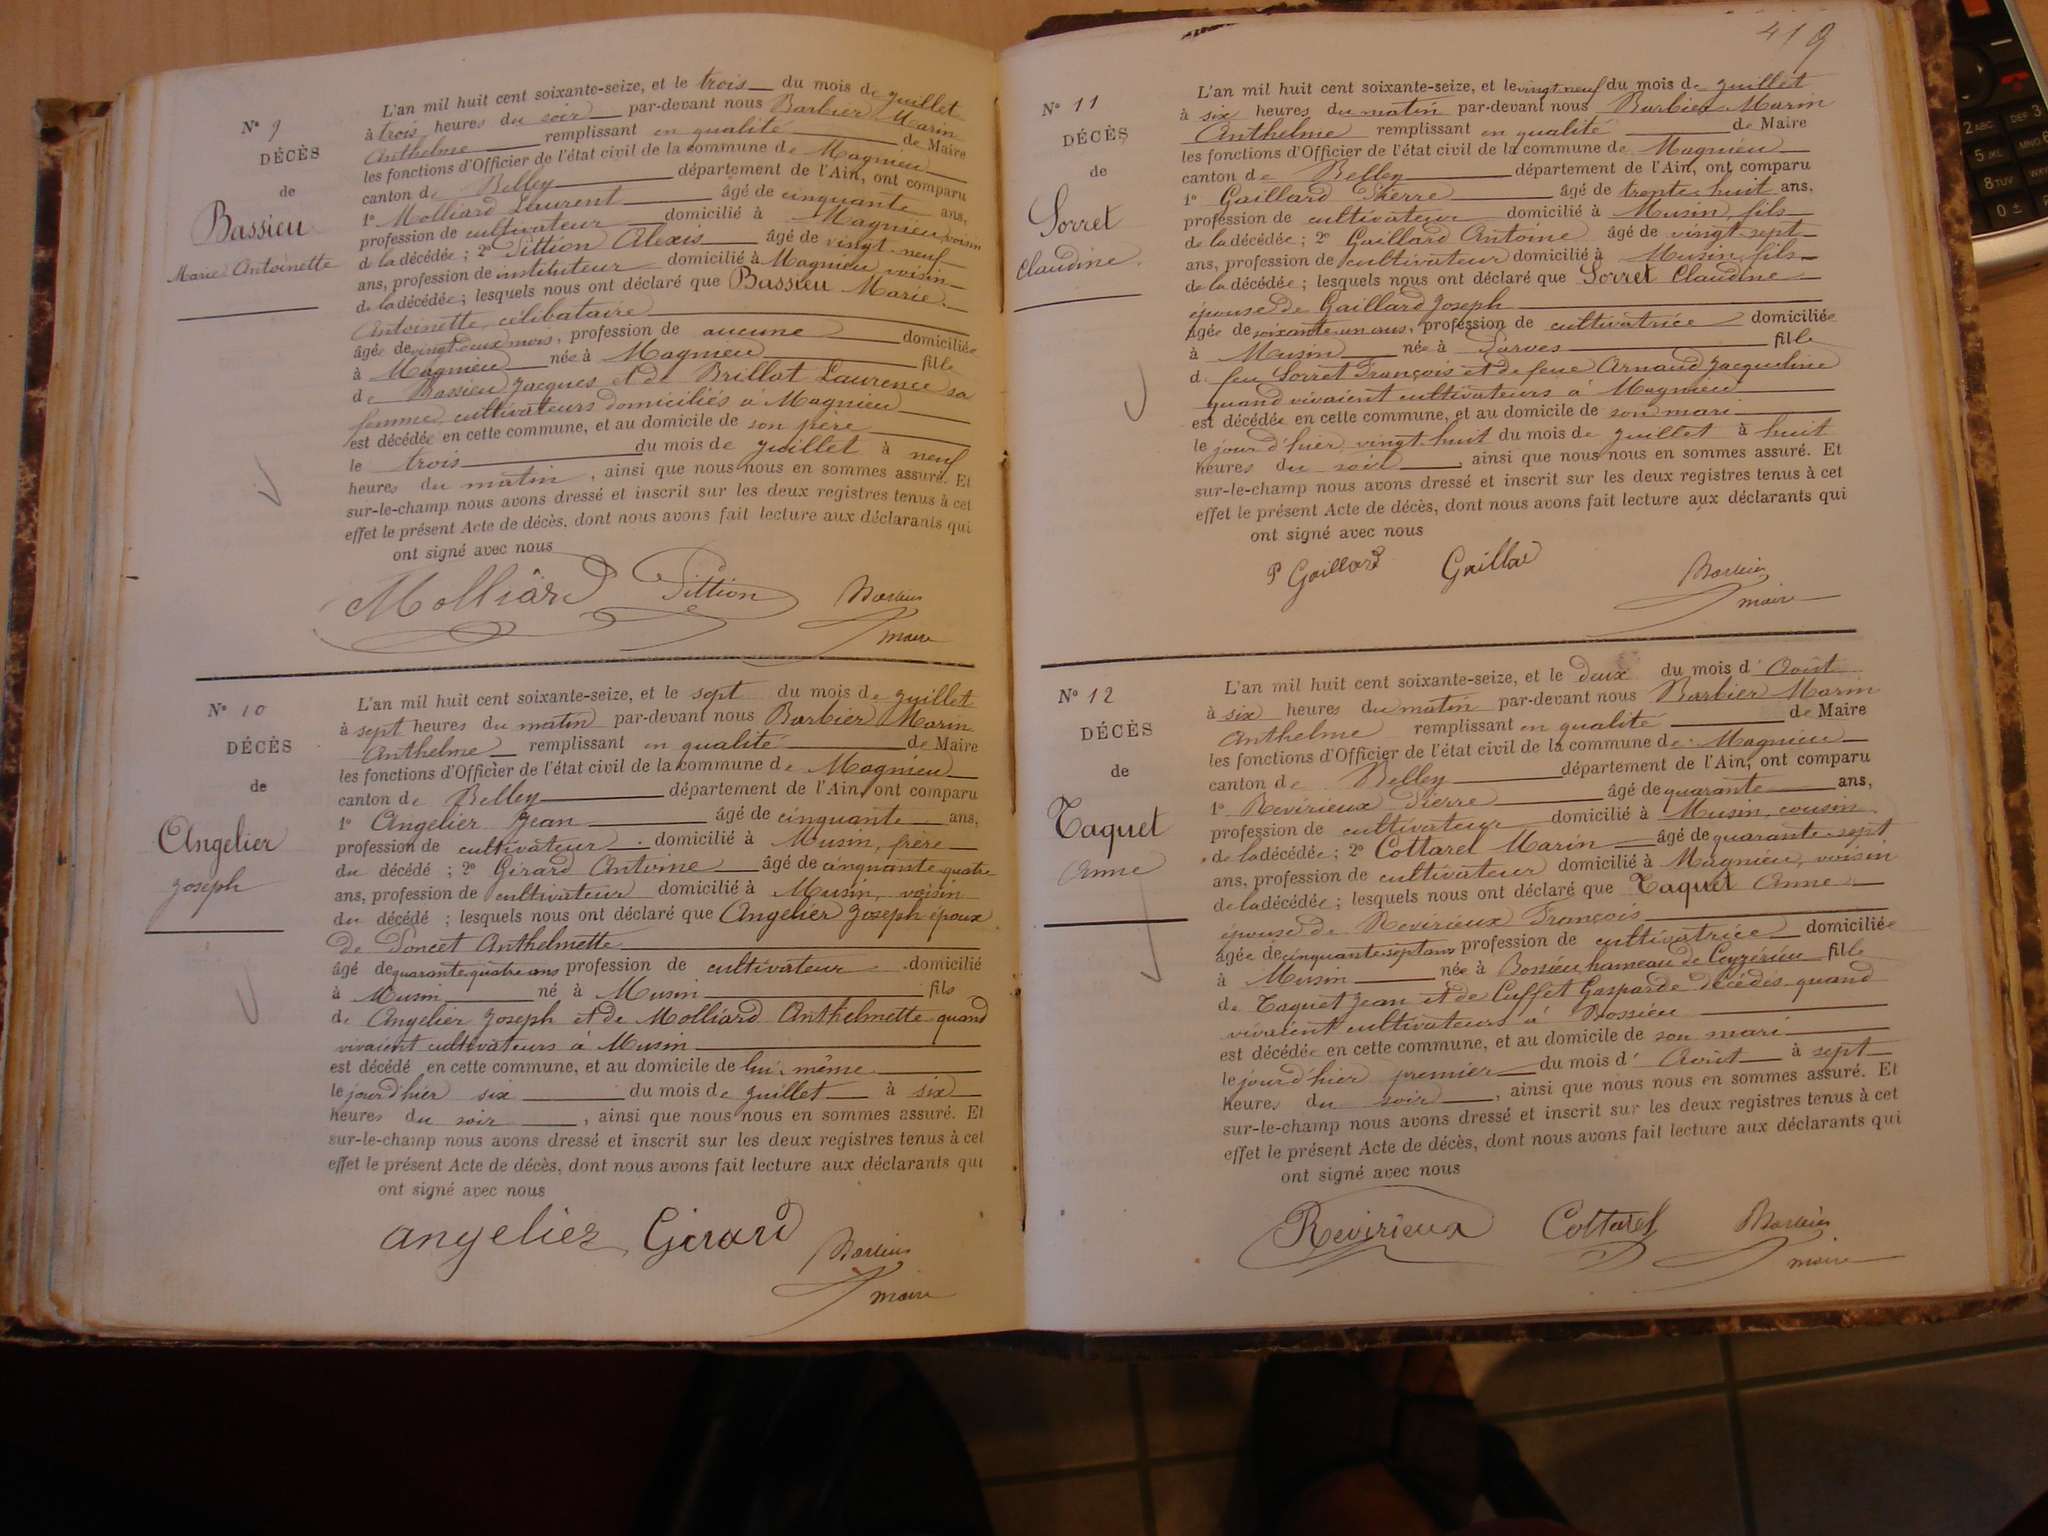 N° 9
DÉCÈS
de
Bassieu
Marie Antoinette
L'an mil huit cent soixante-seize, et le trois du mois de juillet
à trois heures du soir par-devant nous Barbier Marin
Anthelme remplissant en qualité de Maire
les fonctions d'Officier de l'état civil de la commune de Magnieu
canton de Belley département de l'Ain, ont comparu
1° Molliard Laurent âgé de cinquante ans,
profession de cultivateur domicilié à Magnieu, voisin
de la décédée ; 2° Pittion Alexis âgé de vingt-neuf
ans, profession de instituteur domicilié à Magnieu, voisin
de la décédée ; lesquels nous ont déclaré que Bassieu Marie
Antoinette, célibataire
âgée de vingt deux mois, profession de aucune domiciliée
à Magnieu née à Magnieu fille
de Bassieu Jacques et de Brillat Laurence sa
femme, cultivateurs domiciliés à Magnieu
est décédée en cette commune, et au domicile de son père
le trois du mois de juillet à neuf
heures du matin, ainsi que nous nous en sommes assuré. Et
sur-le-champ nous avons dressé et inscrit sur les deux registres tenus à cet
effet le présent Acte de décès, dont nous avons fait lecture aux déclarants qui
ont signé avec nous
Molliard Pittion Barbier
maire
N° 10
DÉCÈS
de
Angelier
Joseph
L'an mil huit cent soixante-seize, et le sept du mois de juillet
à sept heures du matin par-devant nous Barbier Marin
Anthelme remplissant en qualité de Maire
les fonctions d'Officier de l'état civil de la commune de Magnieu
canton de Belley département de l'Ain, ont comparu
1° Angelier Jean âgé de cinquante ans,
profession de cultivateur domicilié à Musin, frère
du décédé ; 2° Girard Antoine âgé de cinquante-quatre
ans, profession de cultivateur domicilié à Musin, voisin
du décédé ; lesquels nous ont déclaré que Angelier Joseph époux
de Poncet Anthelmette
âgé de quarante-quatre ans profession de cultivateur domicilié
à Musin né à Musin fils
de Angelier Joseph et de Molliard Anthelmette quand
vivaient cultivateurs à Musin
est décédé en cette commune, et au domicile de lui-même
le jour d'hier six du mois de juillet à six
heures du soir, ainsi que nous nous en sommes assuré. Et
sur-le-champ nous avons dressé et inscrit sur les deux registres tenus à cet
effet le présent Acte de décès, dont nous avons fait lecture aux déclarants qui
ont signé avec nous
angelier Girard Barbier
maire
419
N° 11
DÉCÈS
de
Sorret
Claudine
L'an mil huit cent soixante-seize, et le vingt neuf du mois de juillet
à six heures du matin par-devant nous Barbier Marin
Anthelme remplissant en qualité de Maire
les fonctions d'Officier de l'état civil de la commune de Magnieu
canton de Belley département de l'Ain, ont comparu
1° Gaillard Pierre âgé de trente-huit ans,
profession de cultivateur domicilié à Musin, fils
de la décédée ; 2° Gaillard Antoine âgé de vingt-sept
ans, profession de cultivateur domicilié à Musin, fils
de la décédée ; lesquels nous ont déclaré que Sorret Claudine
épouse de Gaillard Joseph
âgée de soixante-un ans, profession de cultivatrice domiciliée
à Musin née à Parves fille
de feu Sorret François et de feue Arnaud Jacqueline
quand vivaient cultivateurs à Magnieu
est décédée en cette commune, et au domicile de son mari
le jour d'hier, vingt-huit du mois de juillet à huit
heures du soir, ainsi que nous nous en sommes assuré. Et
sur-le-champ nous avons dressé et inscrit sur les deux registres tenus à cet
effet le présent Acte de décès, dont nous avons fait lecture aux déclarants qui
ont signé avec nous
P Gaillard Gaillar Barbier
maire
N° 12
DÉCÈS
de
Taquet
Anne
L'an mil huit cent soixante-seize, et le deux du mois d'Août
à six heures du matin par-devant nous Barbier Marin
Anthelme remplissant en qualité de Maire
les fonctions d'Officier de l'état civil de la commune de Magnieu
canton de Belley département de l'Ain, ont comparu
1° Revirieux Pierre âgé de quarante ans,
profession de cultivateur domicilié à Musin, cousin
de la décédée ; 2° Cottarel Marin âgé de quarante-sept
ans, profession de cultivateur domicilié à Magnieu, voisin
de la décédée ; lesquels nous ont déclaré que Taquet Anne
épouse de Revirieux François
âgée de cinquante-sept ans profession de cultivatrice domiciliée
à Musin née à Bossieu hameau de Ceyzérieu fille
de Taquet Jean et de Cuffet Gasparde décédés quand
vivaient cultivateurs à Bossieu
est décédée en cette commune, et au domicile de son mari
le jour d'hier premier du mois d'Août à sept
heures du soir, ainsi que nous nous en sommes assuré. Et
sur-le-champ nous avons dressé et inscrit sur les deux registres tenus à cet
effet le présent Acte de décès, dont nous avons fait lecture aux déclarants qui
ont signé avec nous
Revirieux Cottarel Barbier
maire